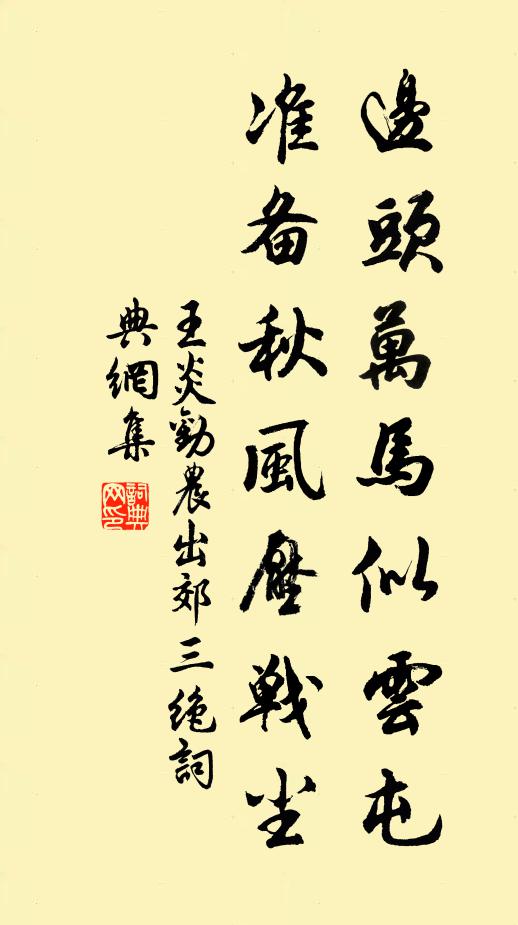 邊頭萬馬似雲屯
准备秋風壓戰尘
王炎勸農出郊三绝詞
典網集
詞典网印